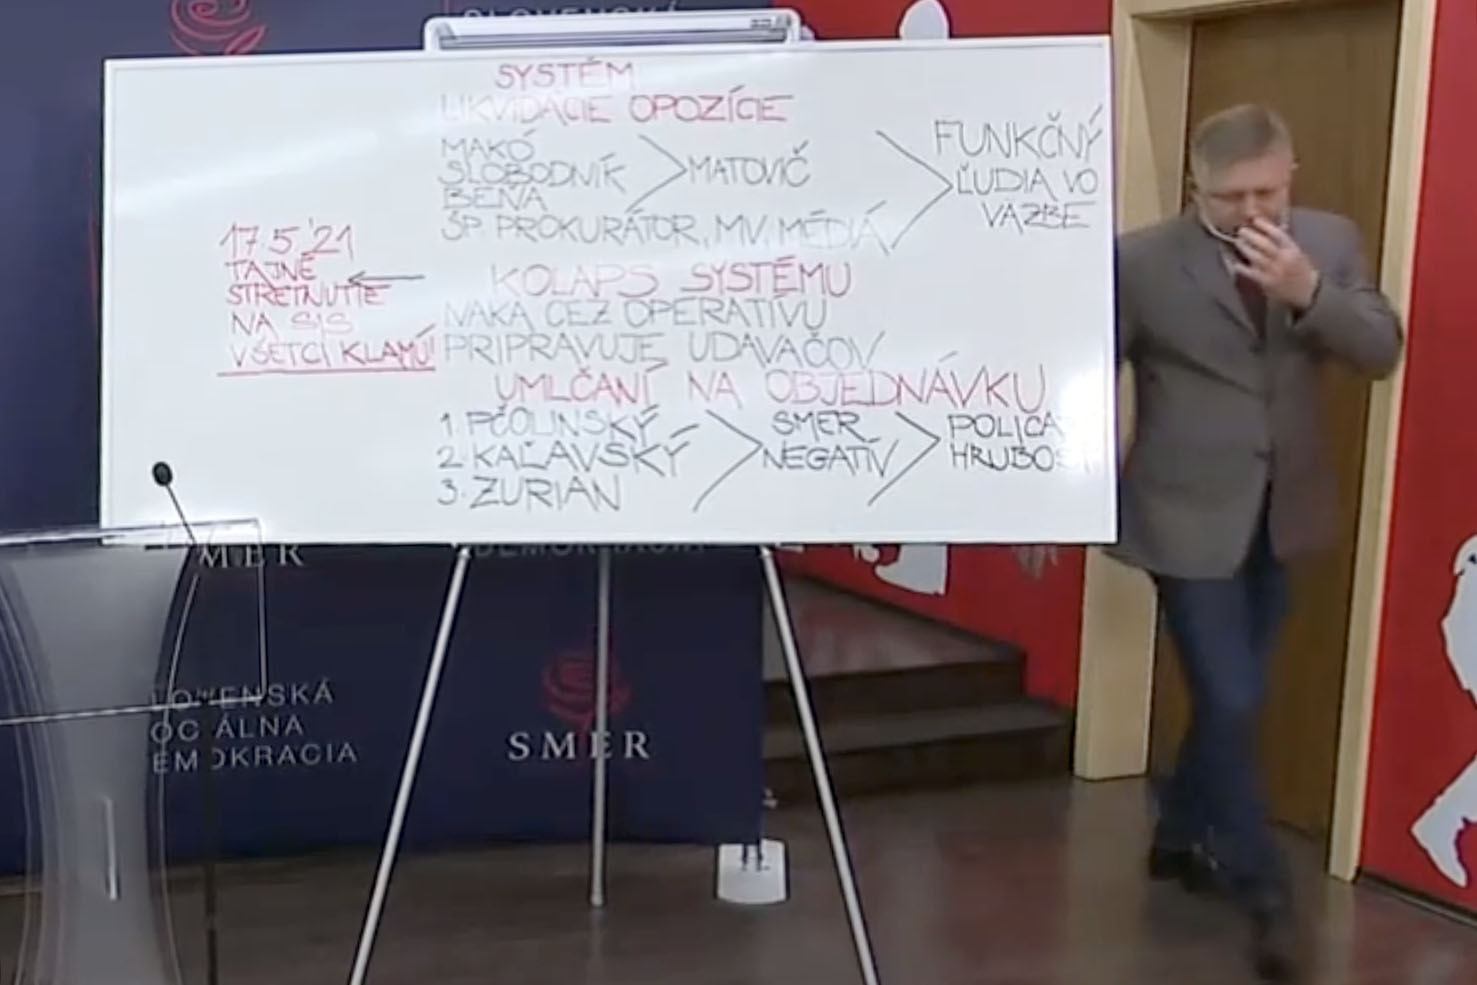 SLOVENSKÁ
SYSTÉM
LIKVIDÁCIE OPOZÍCIE
MAKÓ
SLOBODNÍK
BEŇA
MATOVIČ
ŠP. PROKURÁTOR, MV, MÉDIÁ
FUNKČNÝ
ĽUDIA VO
VÄZBE
17.5.'21
TAJNÉ
STRETNUTIE
NA SIS
VŠETCI KLAMÚ!
KOLAPS SYSTÉMU
NAKA CEZ OPERATÍVU
PRIPRAVUJE UDAVAČOV
UMLČANÍ NA OBJEDNÁVKU
1. PČOLINSKÝ
2. KAĽAVSKÝ
3. ZURIAN
SMER
NEGATÍV
POLICA
HRUBOS
SMER
DEMOKRACIA
LOVENSKÁ
OCIÁLNA
EMOKRACIA
SMER